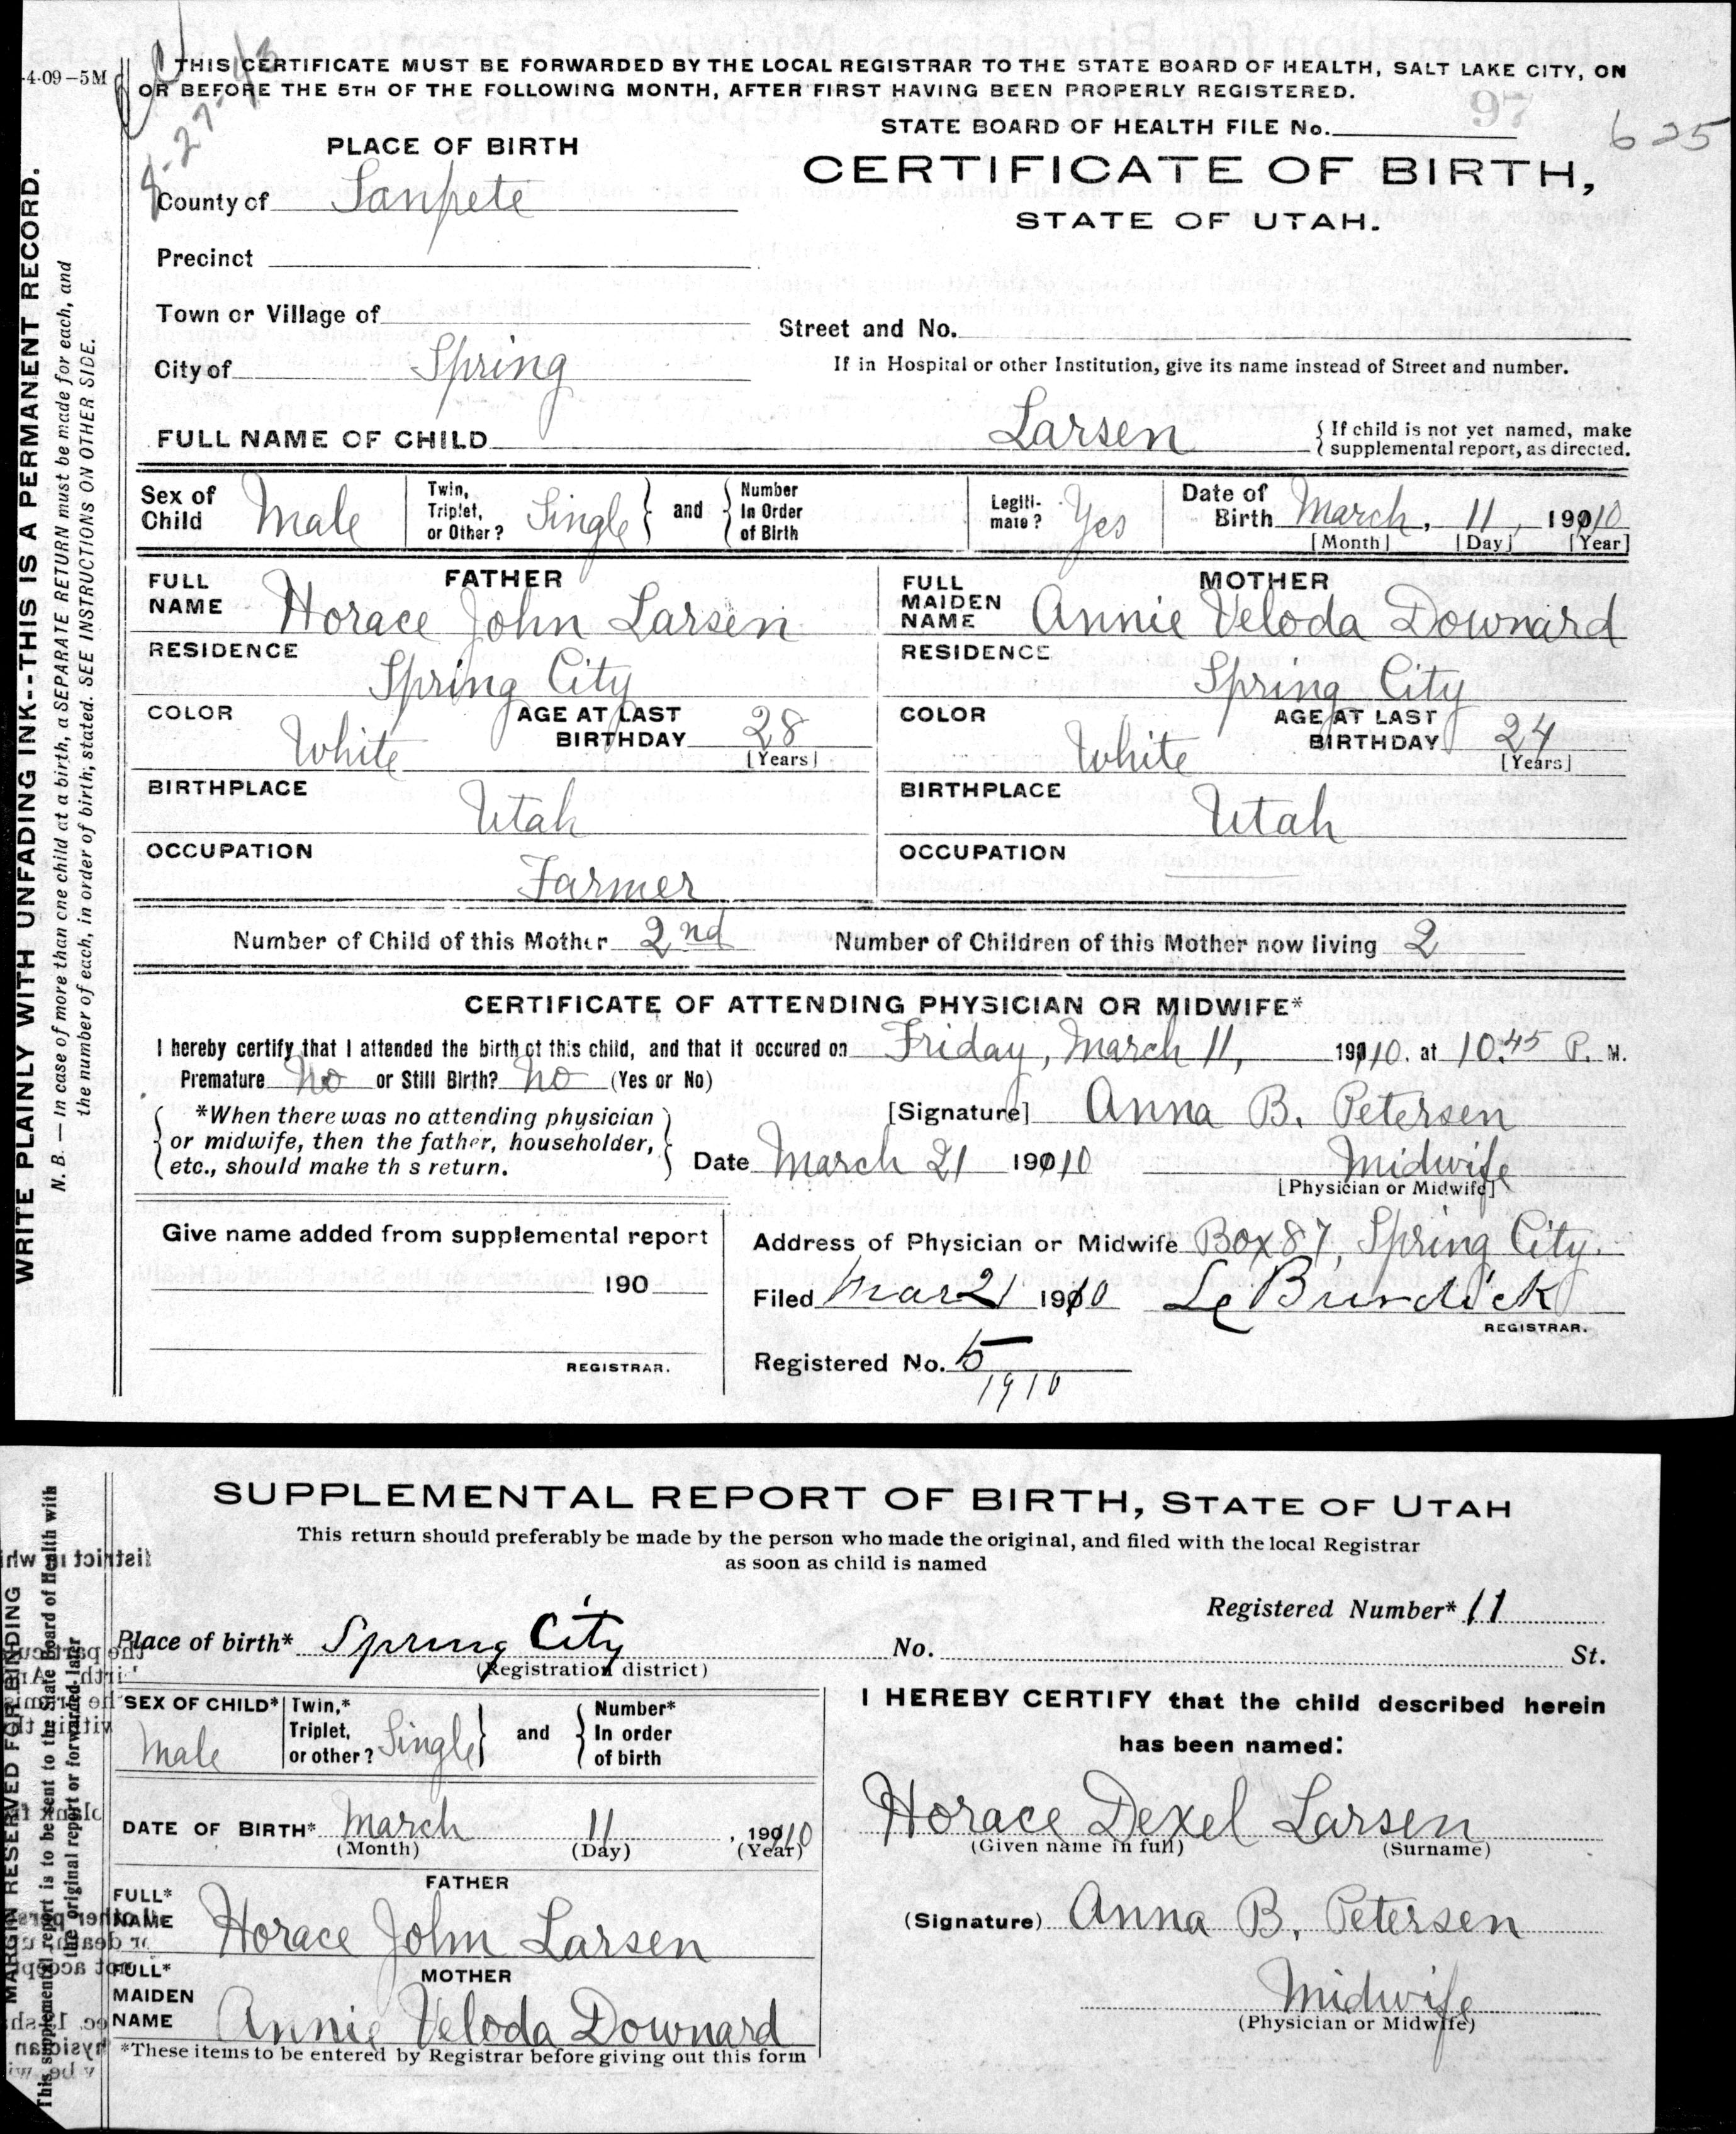 4-09-5M
THIS CERTIFICATE MUST BE FORWARDED BY THE LOCAL REGISTRAR TO THE STATE BOARD OF HEALTH, SALT LAKE CITY, ON
OR BEFORE THE 5TH OF THE FOLLOWING MONTH, AFTER FIRST HAVING BEEN PROPERLY REGISTERED.
97
STATE BOARD OF HEALTH FILE No. 625
CERTIFICATE OF BIRTH,
STATE OF UTAH.
PLACE OF BIRTH
County of Sanpete
Precinct
Town or Village of
Street and No.
City of Spring
If in Hospital or other Institution, give its name instead of Street and number.
FULL NAME OF CHILD Larsen
If child is not yet named, make
supplemental report, as directed.
Sex of Child Male
Twin, Triplet, or Other? Single and Number In Order of Birth
Legitimate? Yes
Date of Birth March, 11, 1910
[Month] [Day] [Year]
FATHER
FULL NAME Horace John Larsen
RESIDENCE
Spring City
COLOR White AGE AT LAST BIRTHDAY 28
[Years]
BIRTHPLACE
Utah
OCCUPATION
Farmer
MOTHER
FULL MAIDEN NAME Annie Veloda Downard
RESIDENCE
Spring City
COLOR White AGE AT LAST BIRTHDAY 24
[Years]
BIRTHPLACE
Utah
OCCUPATION
Number of Child of this Mother 2nd Number of Children of this Mother now living 2
CERTIFICATE OF ATTENDING PHYSICIAN OR MIDWIFE*
I hereby certify that I attended the birth of this child, and that it occured on Friday, March 11, 1910. at 10.45 P. M.
Premature No or Still Birth? No (Yes or No)
*When there was no attending physician
or midwife, then the father, householder,
etc., should make th s return.
[Signature] Anna B. Petersen
Date March 21 1910 Midwife
[Physician or Midwife]
Give name added from supplemental report
190
REGISTRAR.
Address of Physician or Midwife Box 87, Spring City.
Filed Mar 21 1910 Le Burdick
REGISTRAR.
Registered No. 5
1910
WRITE PLAINLY WITH UNFADING INK--THIS IS A PERMANENT RECORD.
N. B. — In case of more than one child at a birth, a SEPARATE RETURN must be made for each, and
the number of each, in order of birth, stated. SEE INSTRUCTIONS ON OTHER SIDE.
SUPPLEMENTAL REPORT OF BIRTH, STATE OF UTAH
This return should preferably be made by the person who made the original, and filed with the local Registrar
as soon as child is named
Registered Number* 11
Place of birth* Spring City No. St.
(Registration district)
SEX OF CHILD* Male
Twin,* Triplet, or other? Single and Number* In order of birth
DATE OF BIRTH* March 11, 1910
(Month) (Day) (Year)
FATHER
FULL* NAME Horace John Larsen
MOTHER
FULL* MAIDEN NAME Annie Veloda Downard
*These items to be entered by Registrar before giving out this form
I HEREBY CERTIFY that the child described herein
has been named:
Horace Dexel Larsen
(Given name in full) (Surname)
(Signature) Anna B. Petersen
Midwife
(Physician or Midwife)
MARGIN RESERVED FOR BINDING
This supplemental report is to be sent to the State Board of Health with
the original report or forwarded later